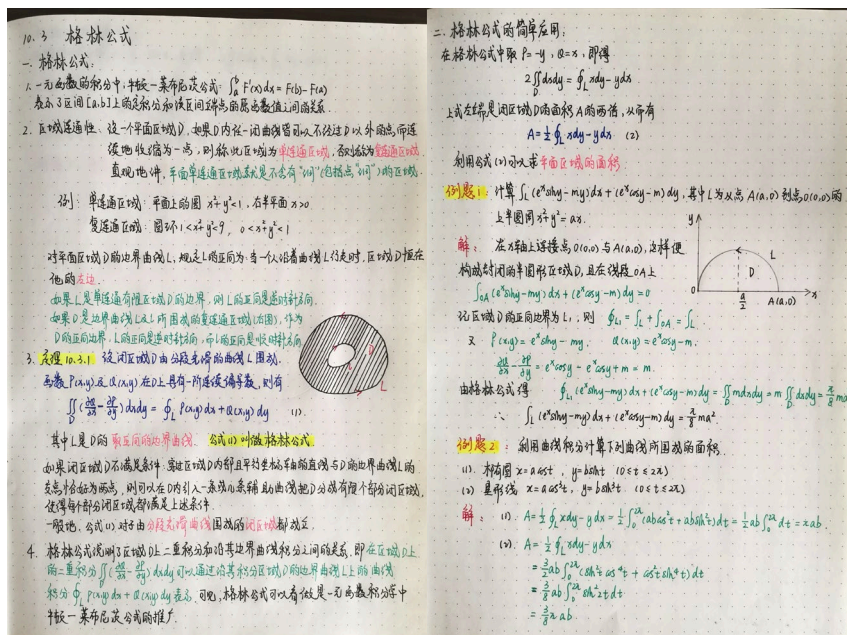 10.3 格林公式
一. 格林公式:
1. 一元函数的积分中,牛顿-莱布尼茨公式: ∫_a^b F'(x)dx = F(b)-F(a)
表示了区间[a,b]上的定积分和该区间端点的原函数值之间的关系.
2. 区域连通性: 设一个平面区域D, 如果D内任一闭曲线皆可以不经过D以外的点,而连
续地收缩为一点, 则称此区域为单连通区域, 否则称为复连通区域.
直观地讲, 平面单连通区域就是不含有"洞"(包括点"洞")的区域.
例: 单连通区域: 平面上的圆 x²+y²<1, 右半平面 x>0
复连通区域: 圆环 1<x²+y²<9, 0<x²+y²<1
对平面区域D的边界曲线L, 规定L的正向为: 当一个人沿着曲线L行走时, 区域D恒在
他的左边.
如果L是单连通有限区域D的边界, 则L的正向是逆时针方向.
如果D是边界曲线L及l所围成的复连通区域(右图), 作为
D的正向边界, L的正向是逆时针方向, 而l的正向是顺时针方向
l D L
3. 定理10.3.1 设闭区域D由分段光滑的曲线L围成,
函数P(x,y)及Q(x,y)在D上具有一阶连续偏导数, 则有
∬_D (∂Q/∂x - ∂P/∂y)dxdy = ∮_L P(x,y)dx+Q(x,y)dy (1).
其中L是D的取正向的边界曲线. 公式(1)叫做格林公式
如果闭区域D不满足条件: 穿过区域D内部且平行坐标轴的直线与D的边界曲线L的
交点恰好为两点, 则可以在D内引入一条或几条辅助曲线把D分成有限个部分闭区域,
使得每个部分闭区域都满足上述条件.
一般地, 公式(1)对于由分段光滑曲线围成的闭区域都成立.
4. 格林公式说明了区域D上二重积分和沿其边界曲线积分之间的关系, 即在区域D上
的二重积分∬_D(∂Q/∂x - ∂P/∂y)dxdy可以通过沿其积分区域D的边界曲线L上的曲线
积分∮_L P(x,y)dx+Q(x,y)dy表示. 可见, 格林公式可以看做是一元函数积分学中
牛顿-莱布尼茨公式的推广.
二. 格林公式的简单应用:
在格林公式中取 P=-y, Q=x, 即得
2∬_D dxdy = ∮_L xdy-ydx
上式左端是闭区域D的面积A的两倍, 从而有
A=½∮_L xdy-ydx (2)
利用公式(2)可以求平面区域的面积
例题1: 计算∫_L(e^x siny-my)dx+(e^x cosy-m)dy, 其中L为从点A(a,0)到点O(0,0)的
上半圆周x²+y²=ax.
解: 在x轴上连接点O(0,0)与A(a,0), 这样便
构成封闭的半圆形区域D, 且在线段OA上
y L D 0 a/2 A(a,0) x
∫_OA(e^x siny-my)dx+(e^x cosy-m)dy=0
记区域D的正向边界为L₁, 则 ∮_L₁=∫_L+∫_OA=∫_L
又 P(x,y)=e^x siny-my, Q(x,y)=e^x cosy-m.
∂Q/∂x - ∂P/∂y = e^x cosy-e^x cosy+m=m.
由格林公式得 ∮_L₁(e^x siny-my)dx+(e^x cosy-m)dy=∬_D mdxdy=m∬_D dxdy=π/8 ma²
∴ ∫_L(e^x siny-my)dx+(e^x cosy-m)dy=π/8 ma².
例题2: 利用曲线积分计算下列曲线所围成的面积.
(1). 椭圆 x=acost, y=bsint (0≤t≤2π)
(2) 星形线 x=acos³t, y=bsin³t (0≤t≤2π)
解: (1). A=½∮_L xdy-ydx=½∫_0^{2π}(abcos²t+absin²t)dt=½ab∫_0^{2π}dt=πab.
(2). A=½∮_L xdy-ydx
=3/2 ab∫_0^{2π}(sin²t cos⁴t+cos²t sin⁴t)dt
=3/8 ab∫_0^{2π} sin²2t dt
=3/8 πab